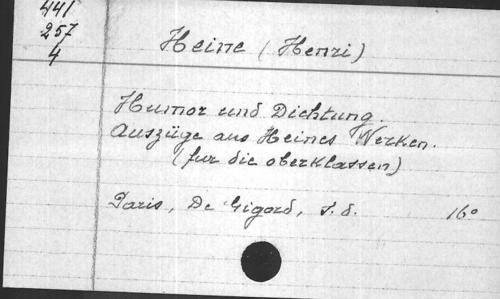 441
257
4
Heine (Henri)
Humor und Dichtung.
Auszüge aus Heines Werken.
(fur die oberklassen)
Paris, De Gigord, s. d. 16°